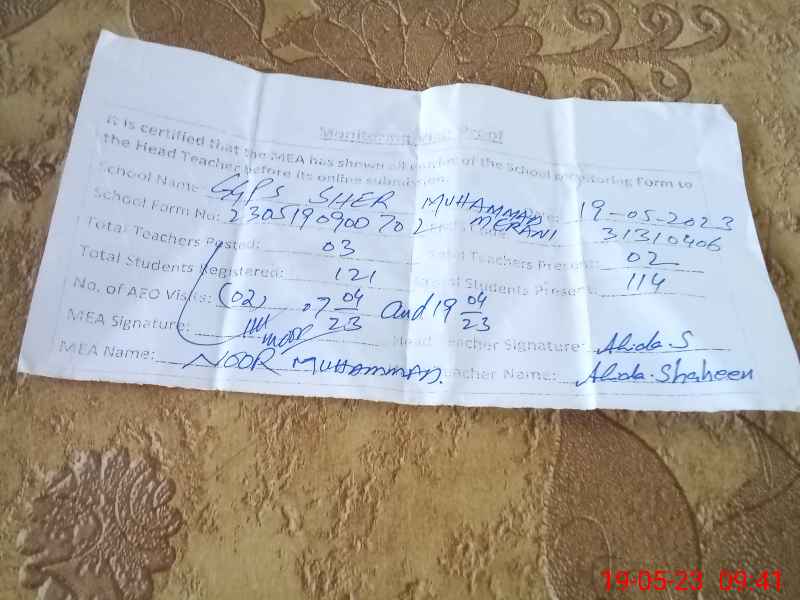 Monitoring Visit Proof
It is certified that the MEA has shown all entries of the School Monitoring Form to
the Head Teacher before its online submission.
School Name: GGPS SHER MUHAMMAD MERANI 19-05-2023
School Form No: 2305190900702 31310406
Total Teachers Posted: 03 Total Teachers Present: 02
Total Students Registered: 121 Total Students Present: 114
No. of AEO Visits: (02) 07 04/23 and 19 04/23
MEA Signature: Head Teacher Signature: Abida.S
MEA Name: NOOR MUHAMMAD. Teacher Name: Abida.Shaheen
19-05-23 09:41